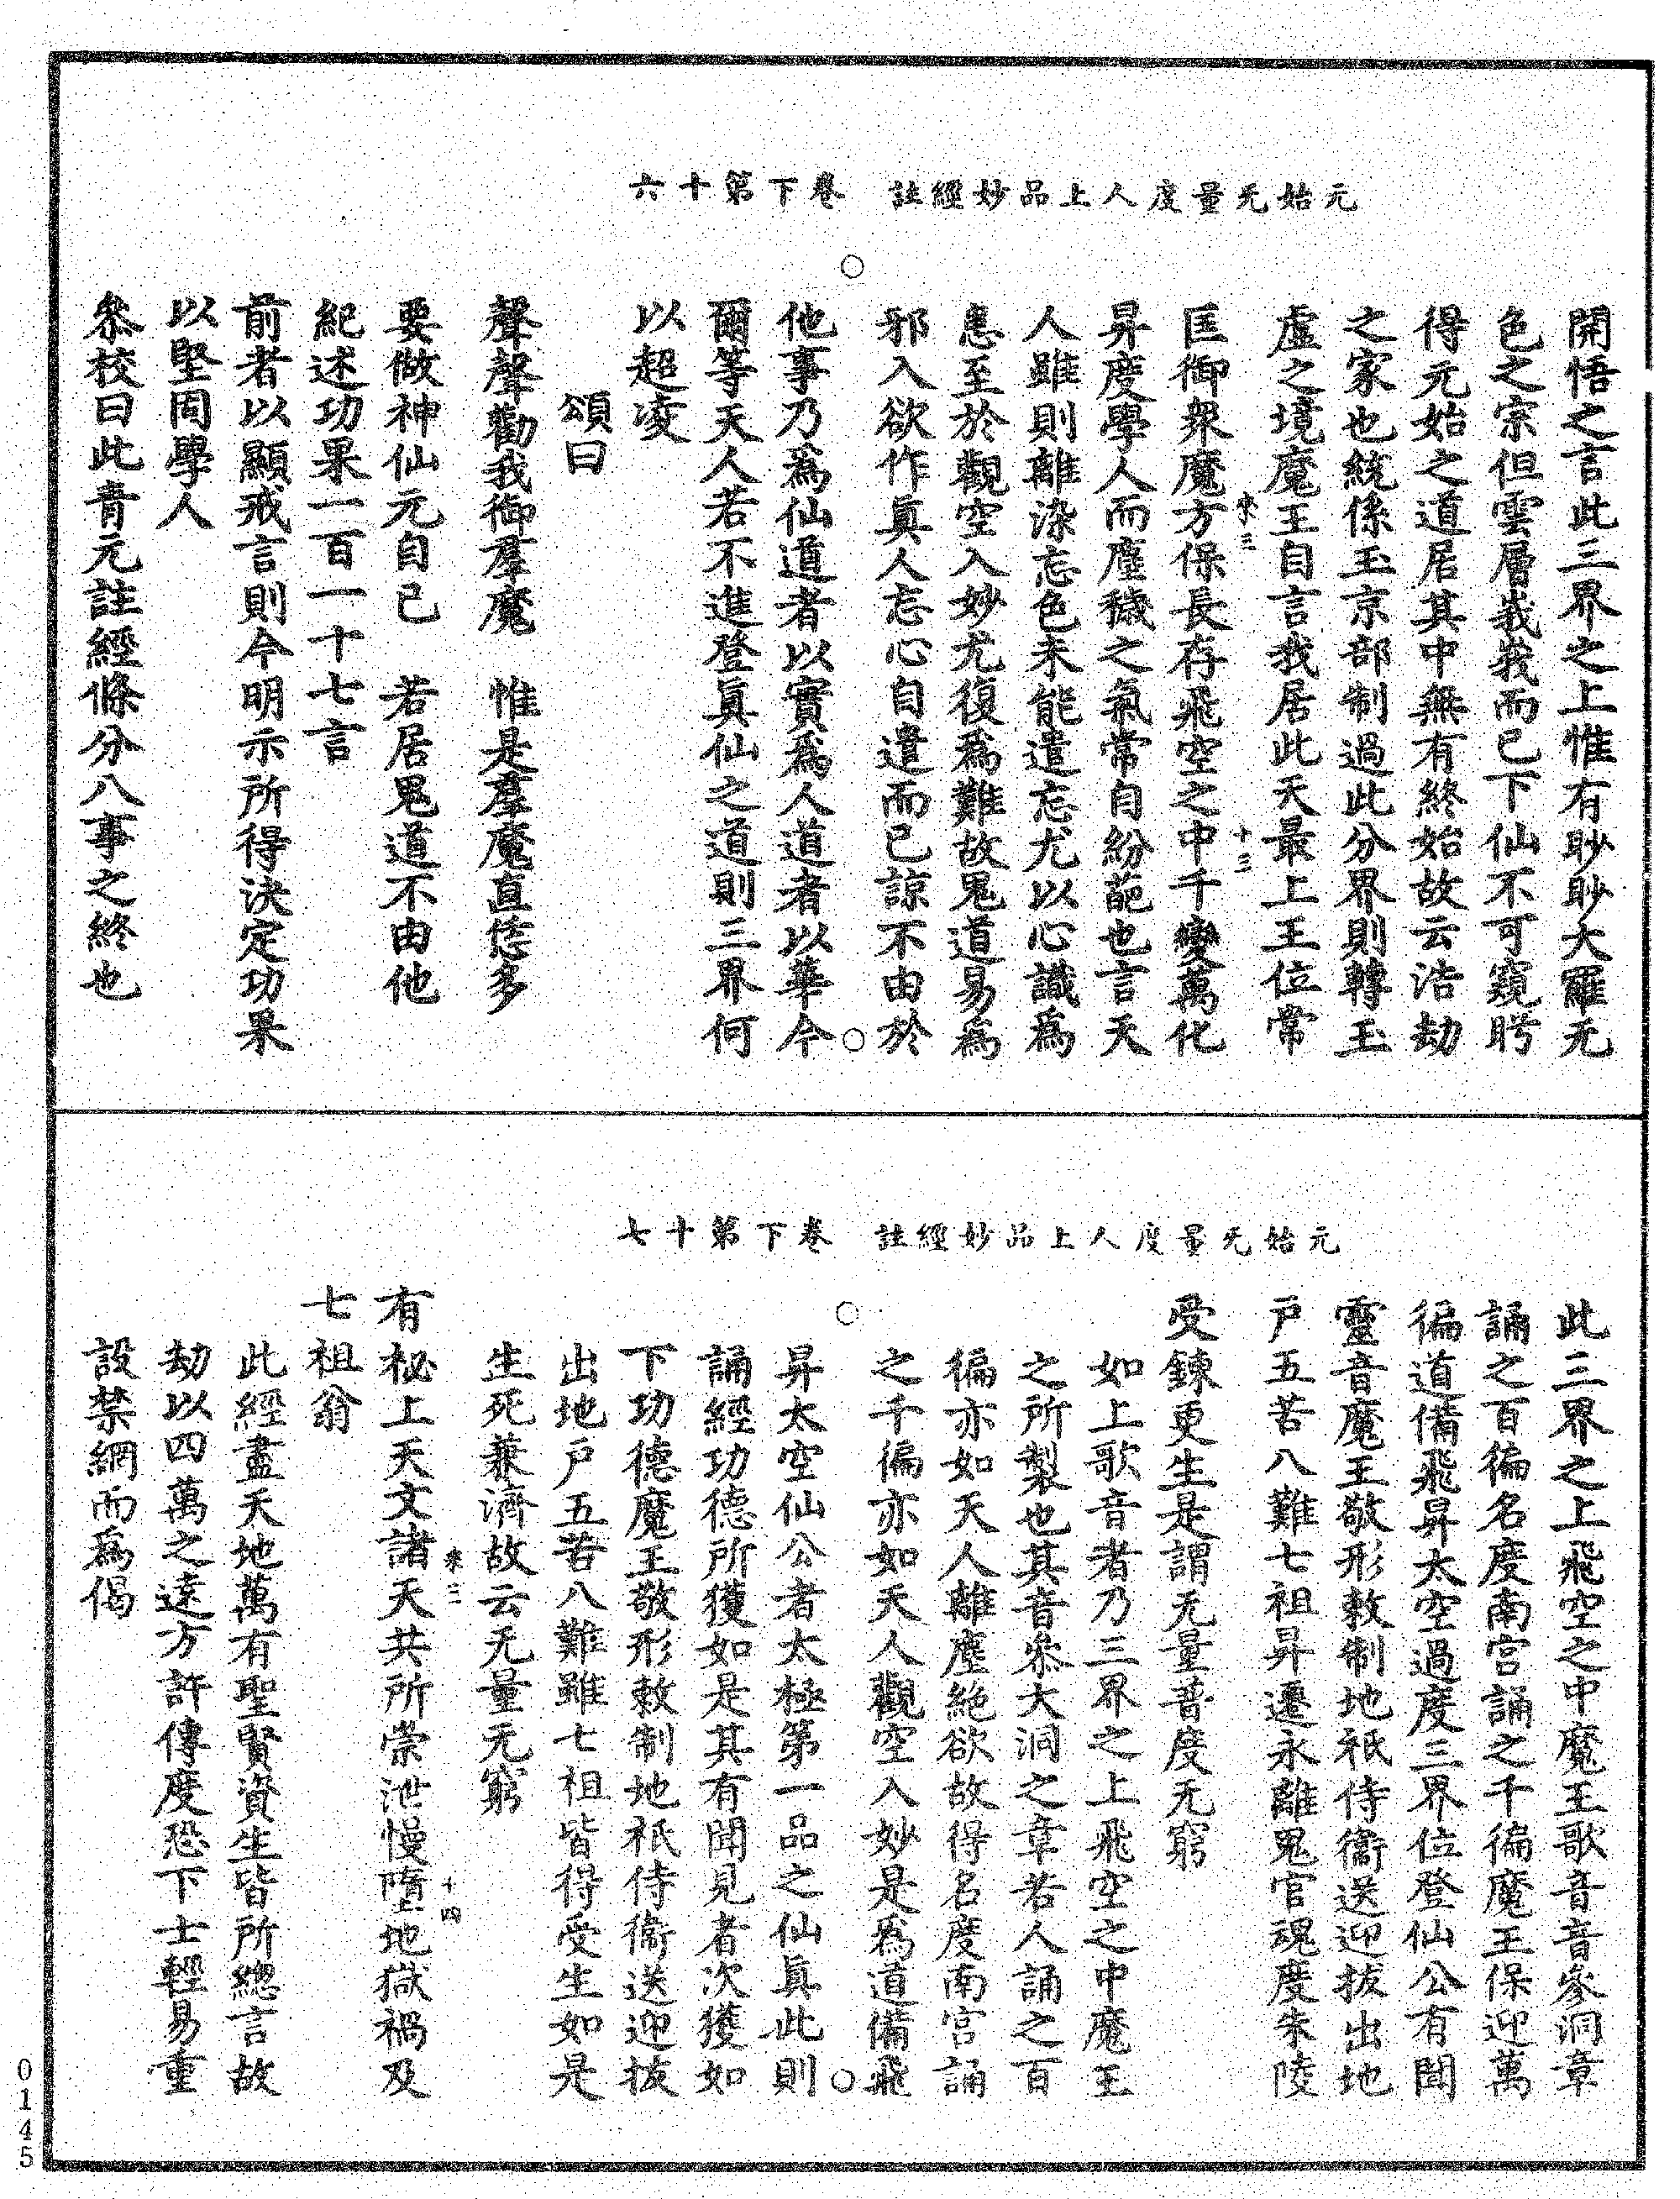 元始无量度人上品妙經註　卷下第十六
開悟之言此三界之上惟有眇眇大羅无
色之宗但雲層峩峩而已下仙不可窺眄
得元始之道居其中無有終始故云浩劫
之家也統係玉京部制過此分界則轉玉
虛之境魔王自言我居此天最上王位常
來三　十三
匡御衆魔方保長存飛空之中千變萬化
昇度學人而塵穢之氣常自紛葩也言天
人雖則離染忘色未能遣忘尤以心識爲
患至於觀空入妙尤復爲難故鬼道易爲
邪入欲作眞人忘心自遣而已諒不由於
他事乃爲仙道者以實爲人道者以華今
爾等天人若不進登眞仙之道則三界何
以超凌
頌曰
聲聲勸我御羣魔　惟是羣魔直恁多
要做神仙元自己　若居鬼道不由他
紀述功果一百一十七言
前者以顯戒言則今明示所得決定功果
以堅固學人
叅校曰此青元註經條分八事之終也
元始无量度人上品妙經註　卷下第十七
此三界之上飛空之中魔王歌音音參洞章
誦之百徧名度南宮誦之千徧魔王保迎萬
徧道備飛昇太空過度三界位登仙公有聞
靈音魔王敬形敕制地祇侍衞送迎拔出地
戶五苦八難七祖昇遷永離鬼官魂度朱陵
受鍊更生是謂无量普度无窮
如上歌音者乃三界之上飛空之中魔王
之所製也其音叅大洞之章若人誦之百
徧亦如天人離塵絕欲故得名度南宮誦
之千徧亦如天人觀空入妙是爲道備飛
昇太空仙公者太極第一品之仙眞此則
誦經功德所獲如是其有聞見者次獲如
下功德魔王敬形敕制地祇侍衞送迎拔
出地戶五苦八難雖七祖皆得受生如是
生死兼濟故云无量无窮
來三　十四
有祕上天文諸天共所崇泄慢墮地獄禍及
七祖翁
此經盡天地萬有聖賢資生皆所總言故
劫以四萬之遠方許傳度恐下士輕易重
設禁網而爲偈
0145